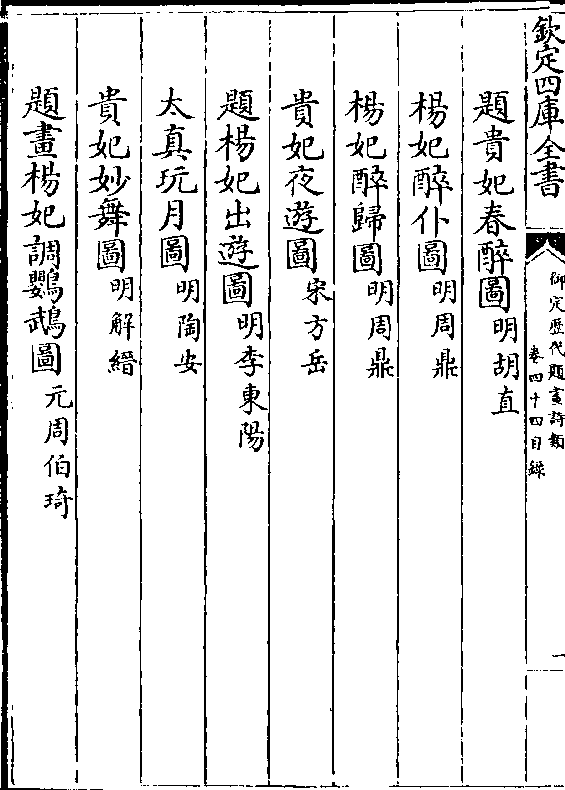 欽定四庫全書
御定歷代題畫詩類
卷四十四目錄
一
題貴妃春醉圖明胡直
楊妃醉仆圖明周鼎
楊妃醉歸圖明周鼎
貴妃夜遊圖宋方岳
題楊妃出遊圖明李東陽
太真玩月圖明陶安
貴妃妙舞圖明解縉
題畫楊妃調鸚鵡圖元周伯琦